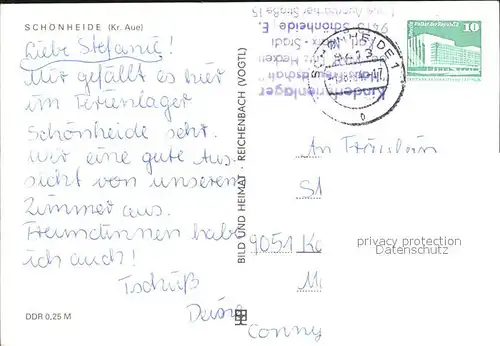 SCHÖNHEIDE (Kr. Aue)
Liebe Stefanie!
Mir gefällt es hier
im Ferienlager
Schönheide sehr.
Wir eine gute Aus-
sicht von unserem
Zimmer aus.
Freundinnen habe
ich auch!
Tschüß
Conny
DDR 0,25 M
BILD UND HEIMAT REICHENBACH (VOGTL)
Kinderferienlager
9417 Schönheide E.
SCHÖNHEIDE 1
10
An Fräulein
St
9051 Ka
privacy protection
Datenschutz
M